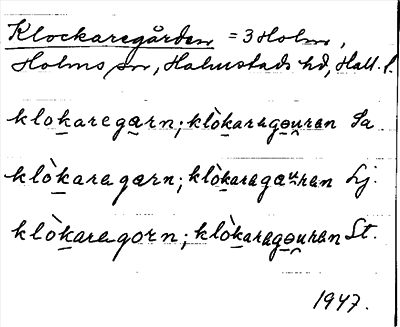 Klockaregården = 3 Holm,
Holms sn, Halmstads hd, Hall. l.
klok̲aregæ̲rn; klòk̲aragǝ̲u̯rən Sa
klòk̲aragærn; klòk̲aragau̯rən Lj.
klòk̲aragorn; klòk̲aragǝ̲u̯rən St.
1947.